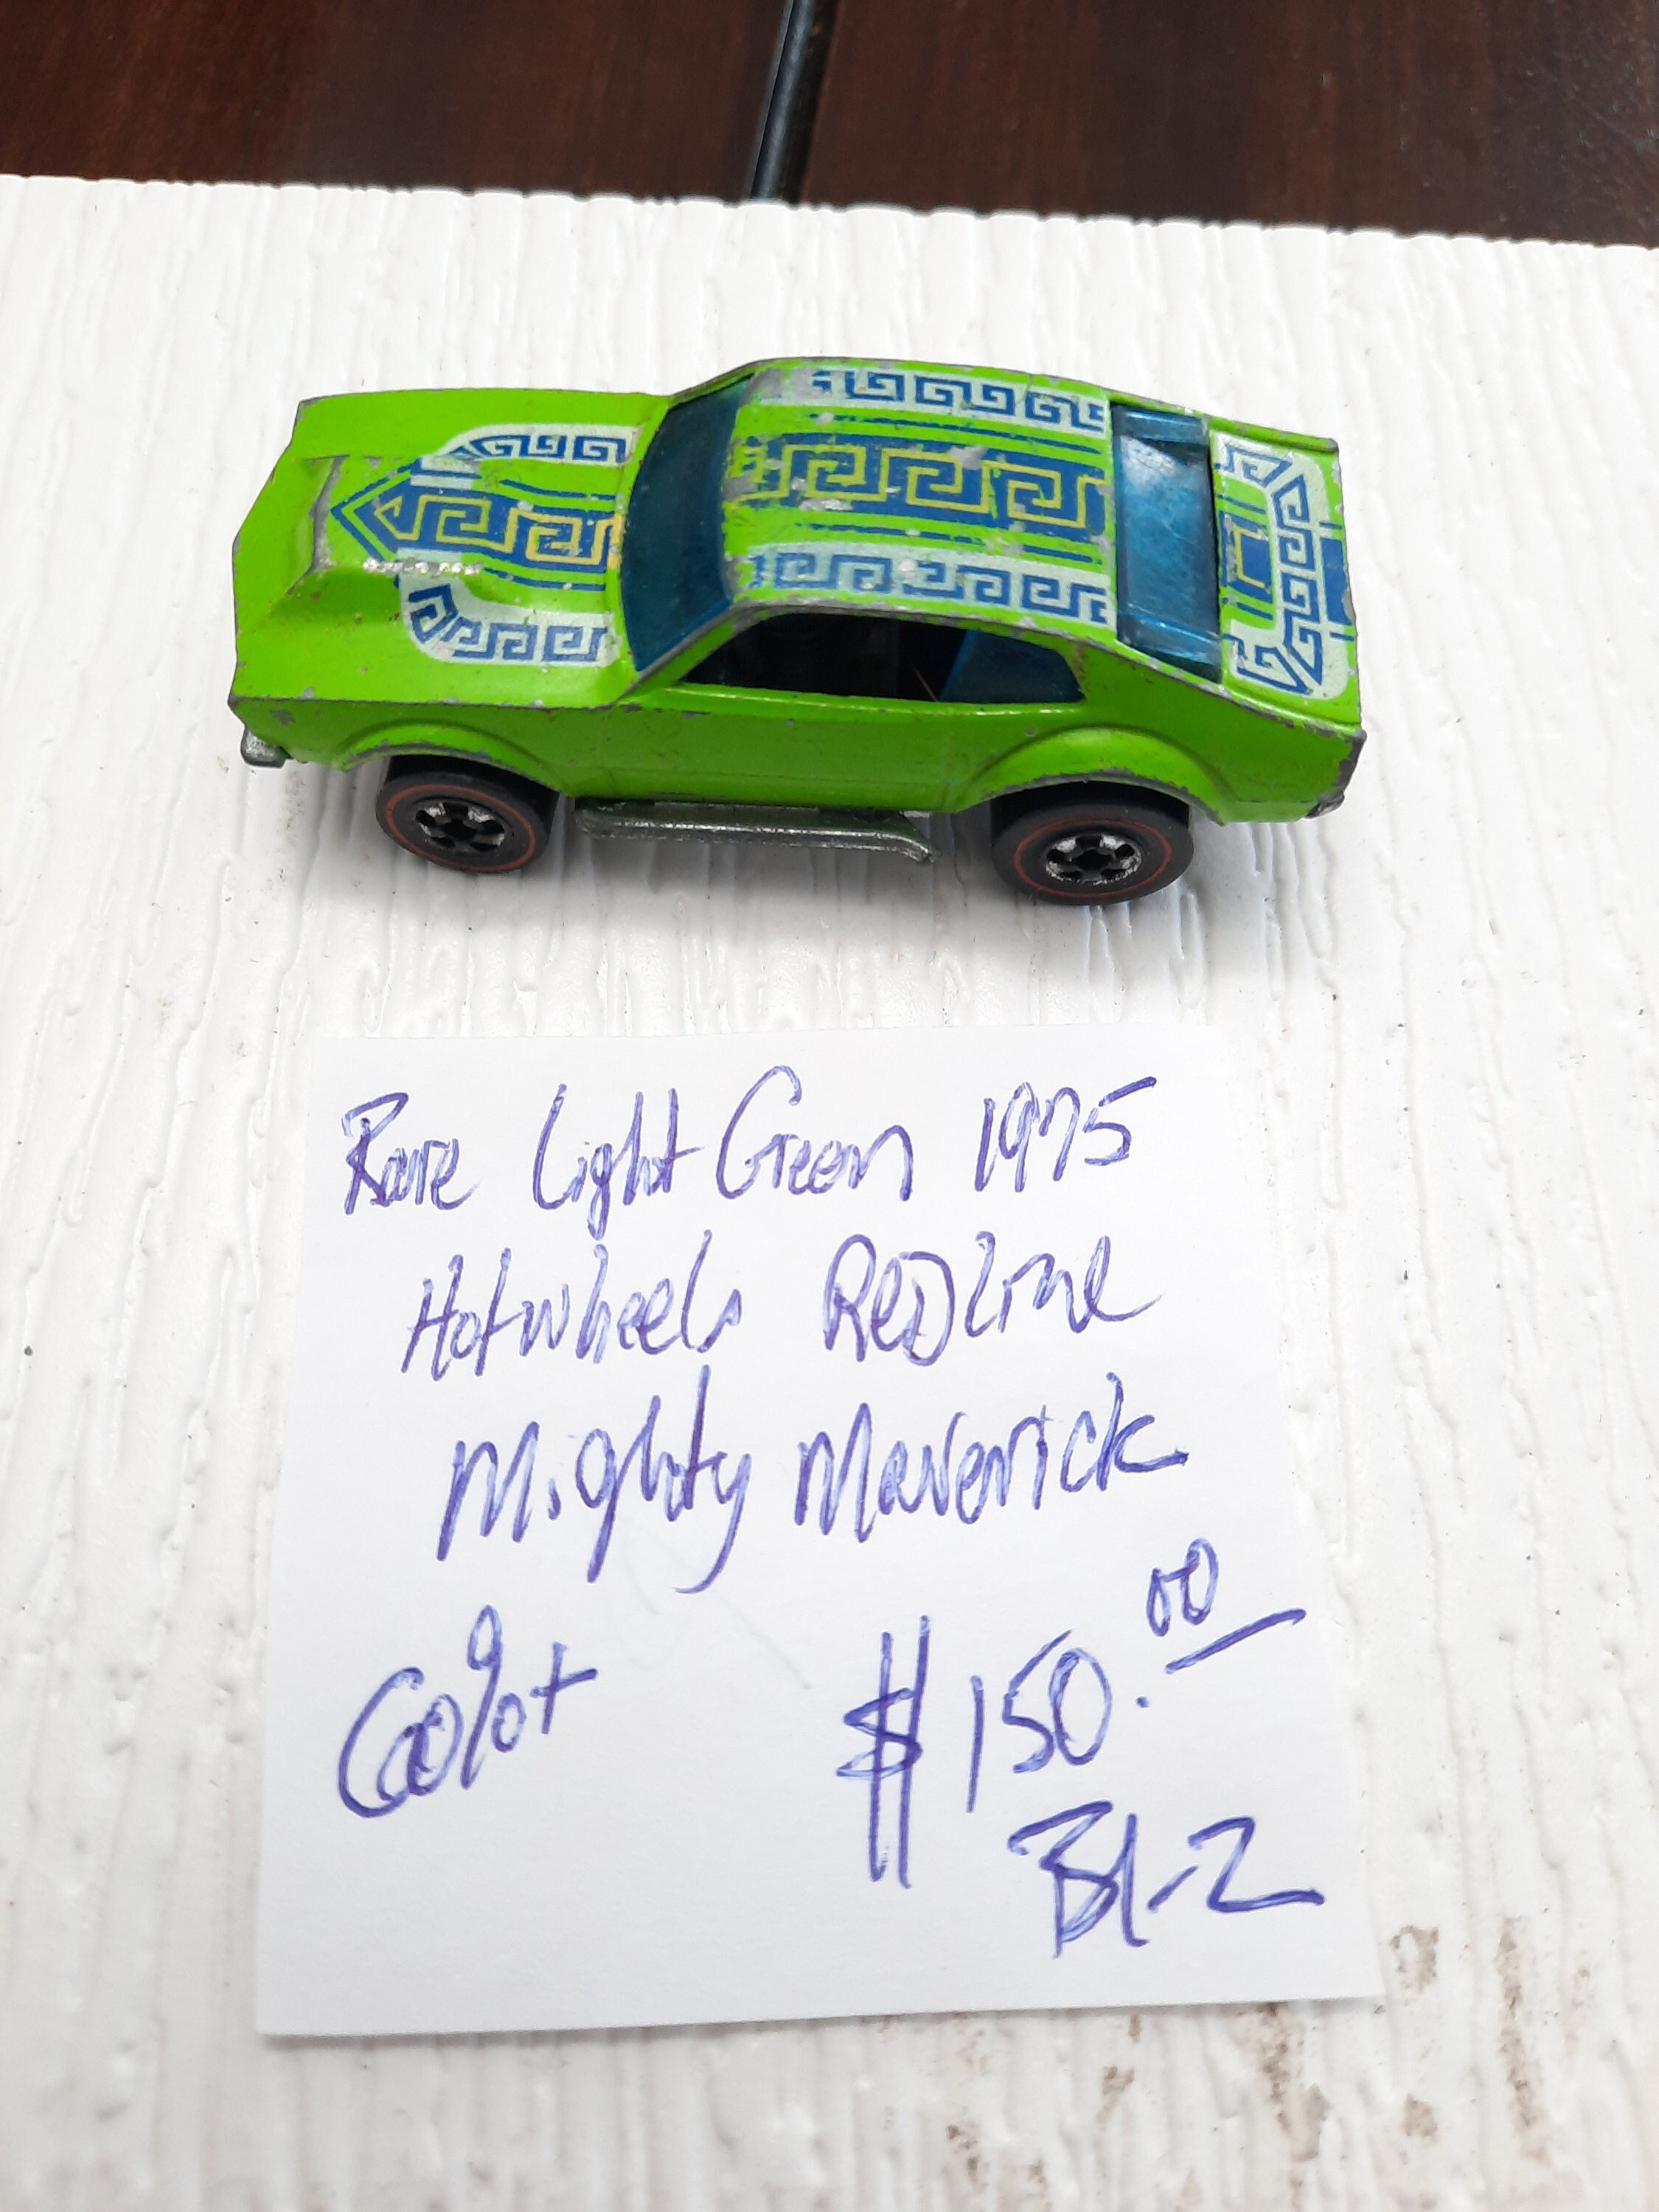 Rare Light Green 1975
Hotwheels REDLine
Mighty Maverick
$150.00
B1-2